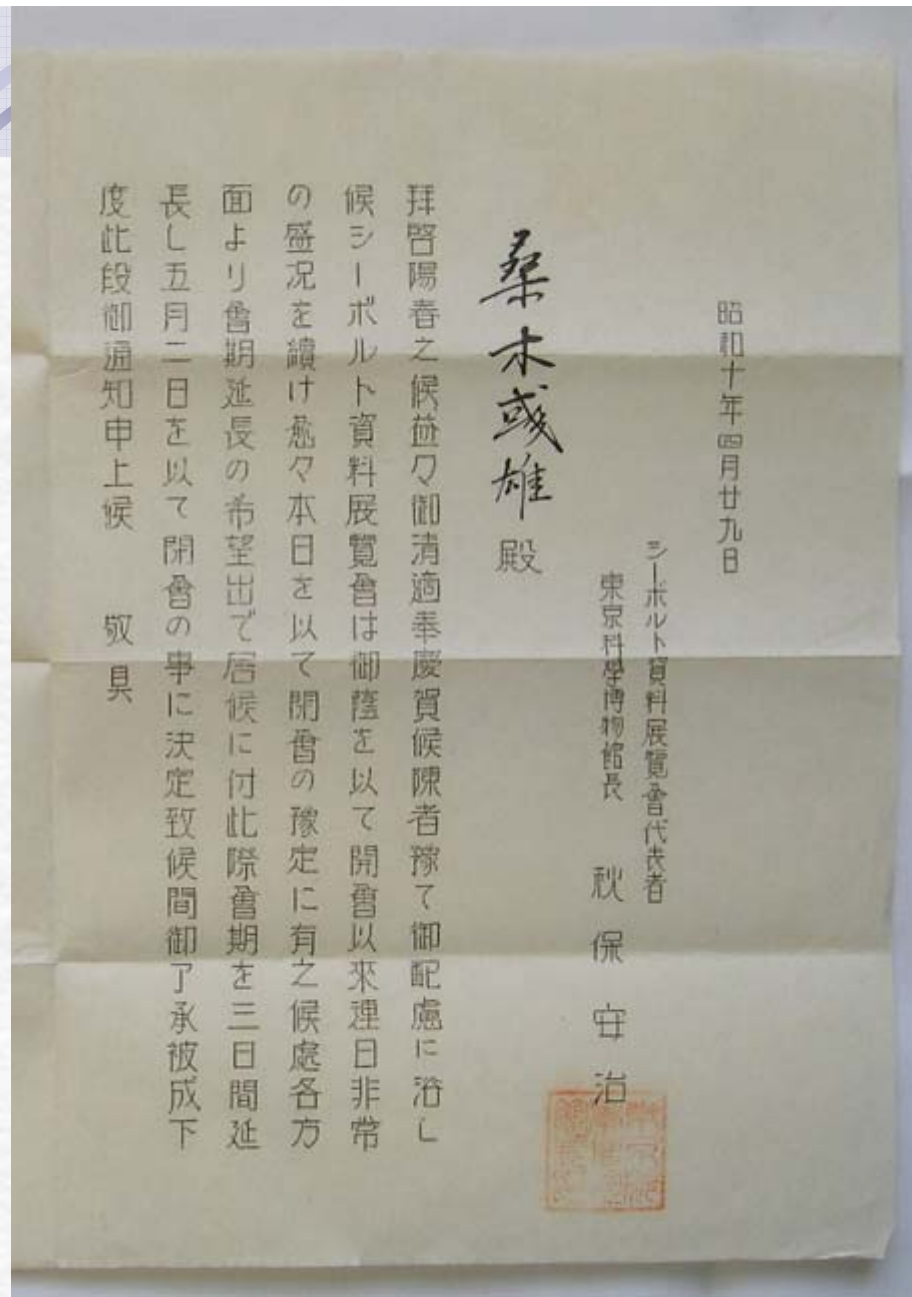 昭和十年四月廿九日
シーボルト資料展覽會代表者
東京科學博物館長 秋保安治
桑木彧雄殿
拜啓陽春之候益々御淸適奉慶賀候陳者豫て御配慮に浴し
候シーボルト資料展覽會は御蔭を以て開會以來連日非常
の盛況を續け愈々本日を以て閉會の豫定に有之候處各方
面より會期延長の希望出で居候に付此際會期を三日間延
長し五月二日を以て閉會の事に決定致候間御了承被成下
度此段御通知申上候 敬具